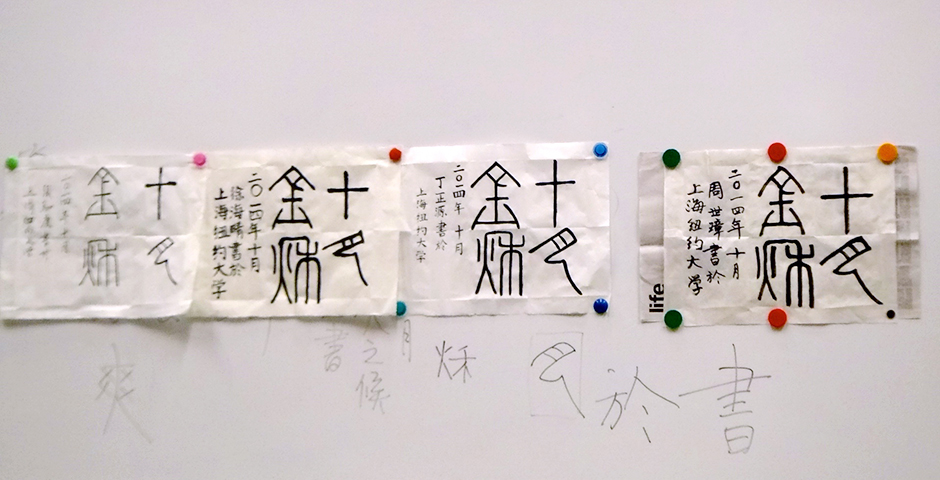 十月
金秌
二〇一四年十月
上海纽约大学
十月
金秌
二〇一四年十月
徐海晴書於
上海纽约大学
十月
金秌
二〇一四年 十月
丁正源書於
上海纽约大学
十月
金秌
二〇一四年 十月
周世璋書於
上海纽约大学
life
爽
書
之候
月
秌
月
於
書